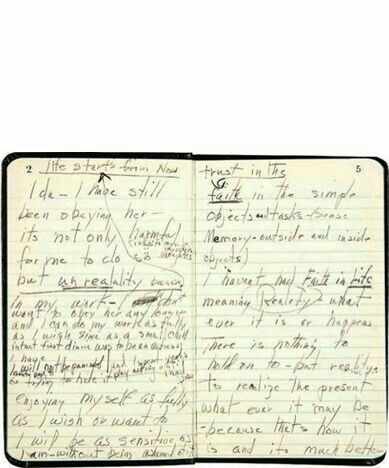 2 life starts from Now
Ida - I have still
been obeying her -
its not only harmful
for me to do so
but unreality because
In my work - I don't
want to obey her any longer
and I can do my work as fully
as I wish since as a small child
intact first desire was to be an actress
I have
I will not be punished and I spent years
trying to hide
Enjoying myself as fully
as I wish or want to
I will be as sensitive as
I am - without being ashamed of it
trust in the 5
faith in the simple
objects and tasks - (sense
Memory - outside and inside
objects)
I havent had Faith in Life
meaning Reality - what
ever it is or happens
There is nothing to
hold on to - but reality
to realize the present
what ever it may be
- because that's how it
is and its much better